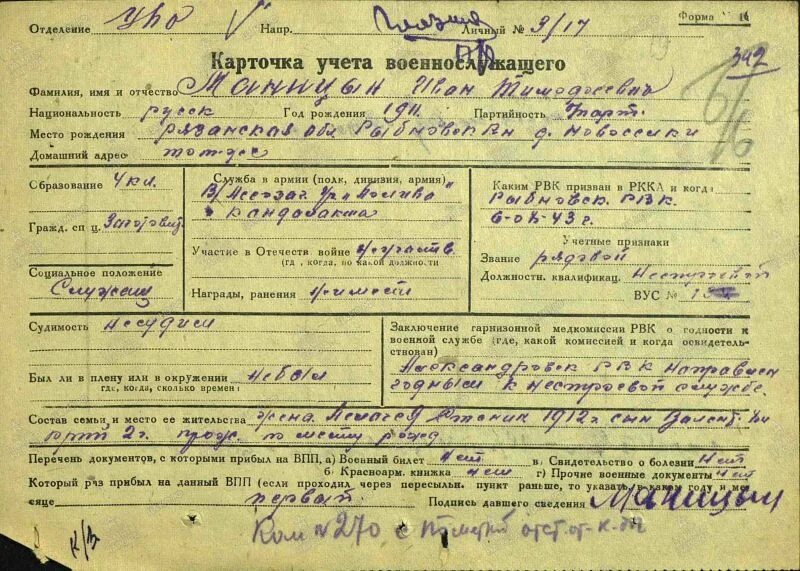 Форма № 16
Отделение Упо Напр. Личный № 9/17
342
Карточка учета военнослужащего
Фамилия, имя и отчество Маницын Иван Тимофеевич
Национальность русск Год рождения 1911. Партийность б/парт.
Место рождения Рязанская обл Рыбновск р-н д. Новоселки
Домашний адрес тот-же
Образование 4 кл.
Гражд. спец.
Социальное положение
Служащ
Служба в армии (полк, дивизия, армия)
г Кандалакша
Участие в Отечеств войне не участв.
(где, когда, по какой должности
Награды, ранения не имеет
Каким РВК призван в РККА и когда
Рыбновск. РВК.
43 г.
Учетные признаки
Звание рядовой
Должностн. квалификац. Нестроевой
ВУС №
Судимость несудим
Был ли в плену или в окружении не был
где, когда, сколько времени
Заключение гарнизонной медкомиссии РВК о годности к военской службе (где, какой комиссией и когда освидетельствован)
Александровск РВК направлен
годным к нестроевой службе.
Состав семьи, и место ее жительства жена 1912 г сын
2 г. прож. по месту рожд
Перечень документов, с которыми прибыл на ВПП, а) Военный билет нет в. Свидетельство о болезни нет
б) Красноарм. книжка нет г) Прочие военные документы нет
Который раз прибыл на данный ВПП (если проходил через пересыльн. пункт раньше, то указать, в каком году и месяце первый. Подпись давшего сведения Маницын
Ком №270 с
К/В